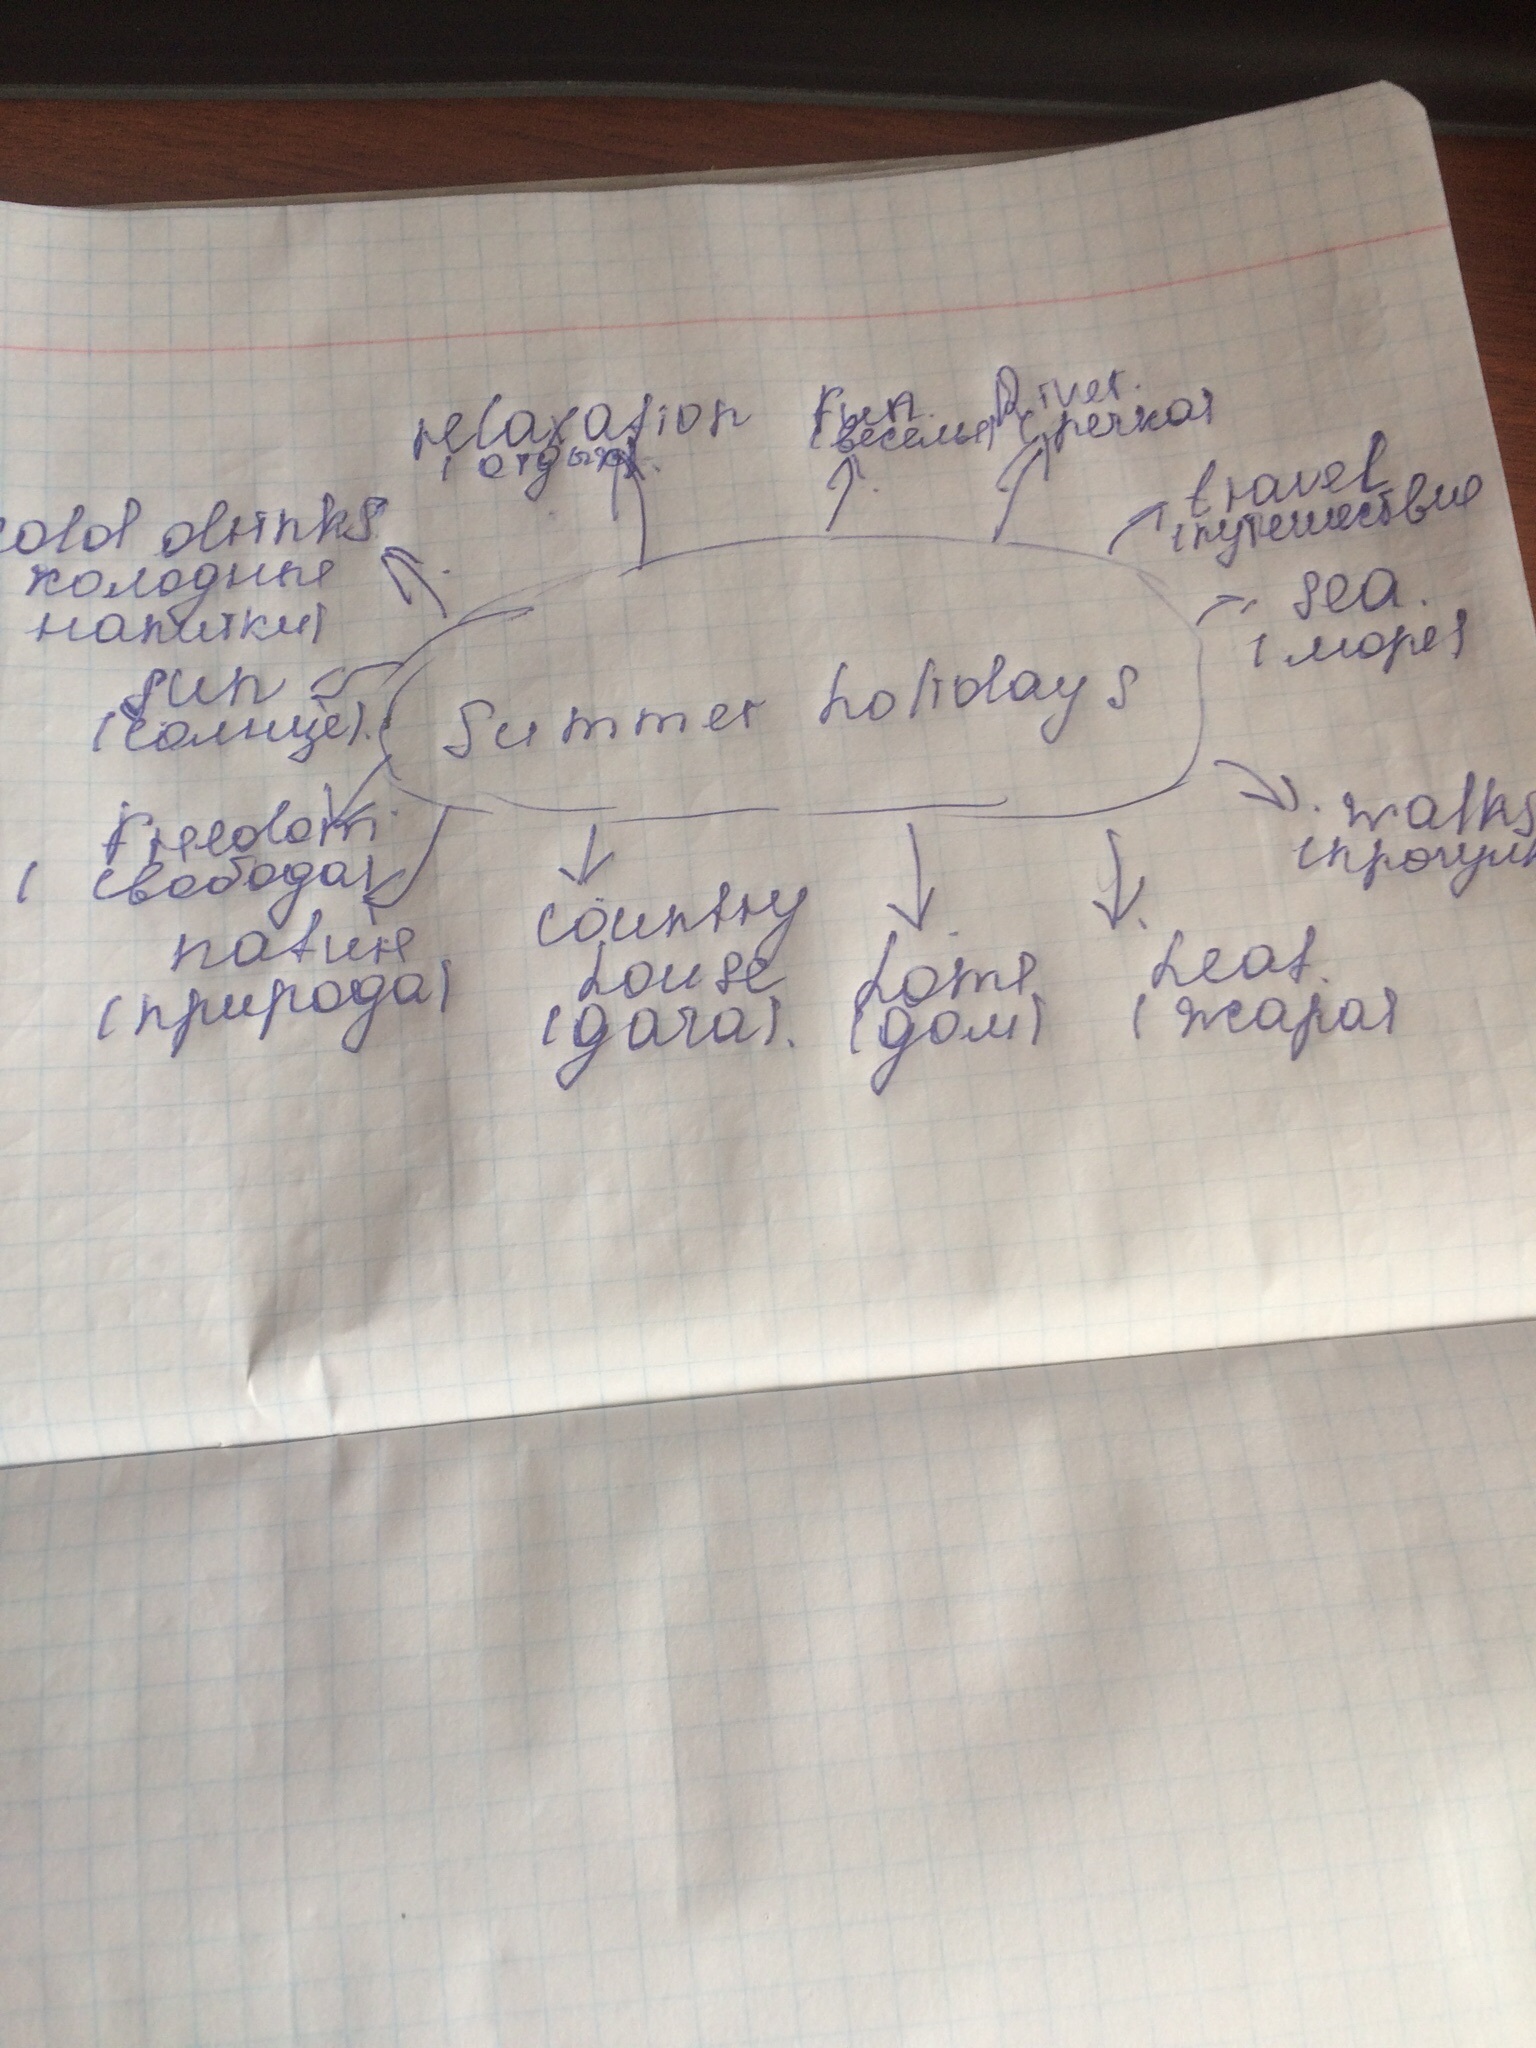 relaxation
(отдых)
Fun.
(веселье)
River.
(речка)
travel
(путешествие
cold drinks
холодные
напитки)
sea.
(море)
sun
(солнце).
Summer holidays
Freedom.
(свобода)
walks
(прогулк
nature
(природа)
country
house
(дача).
home
(дом)
heat.
(жара)